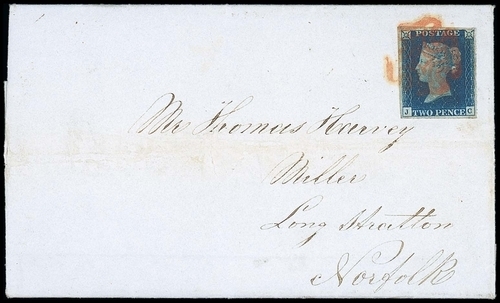 POSTAGE
J C
TWO PENCE
Mr Thomas Harvey
Miller
Long Stratton
Norfolk